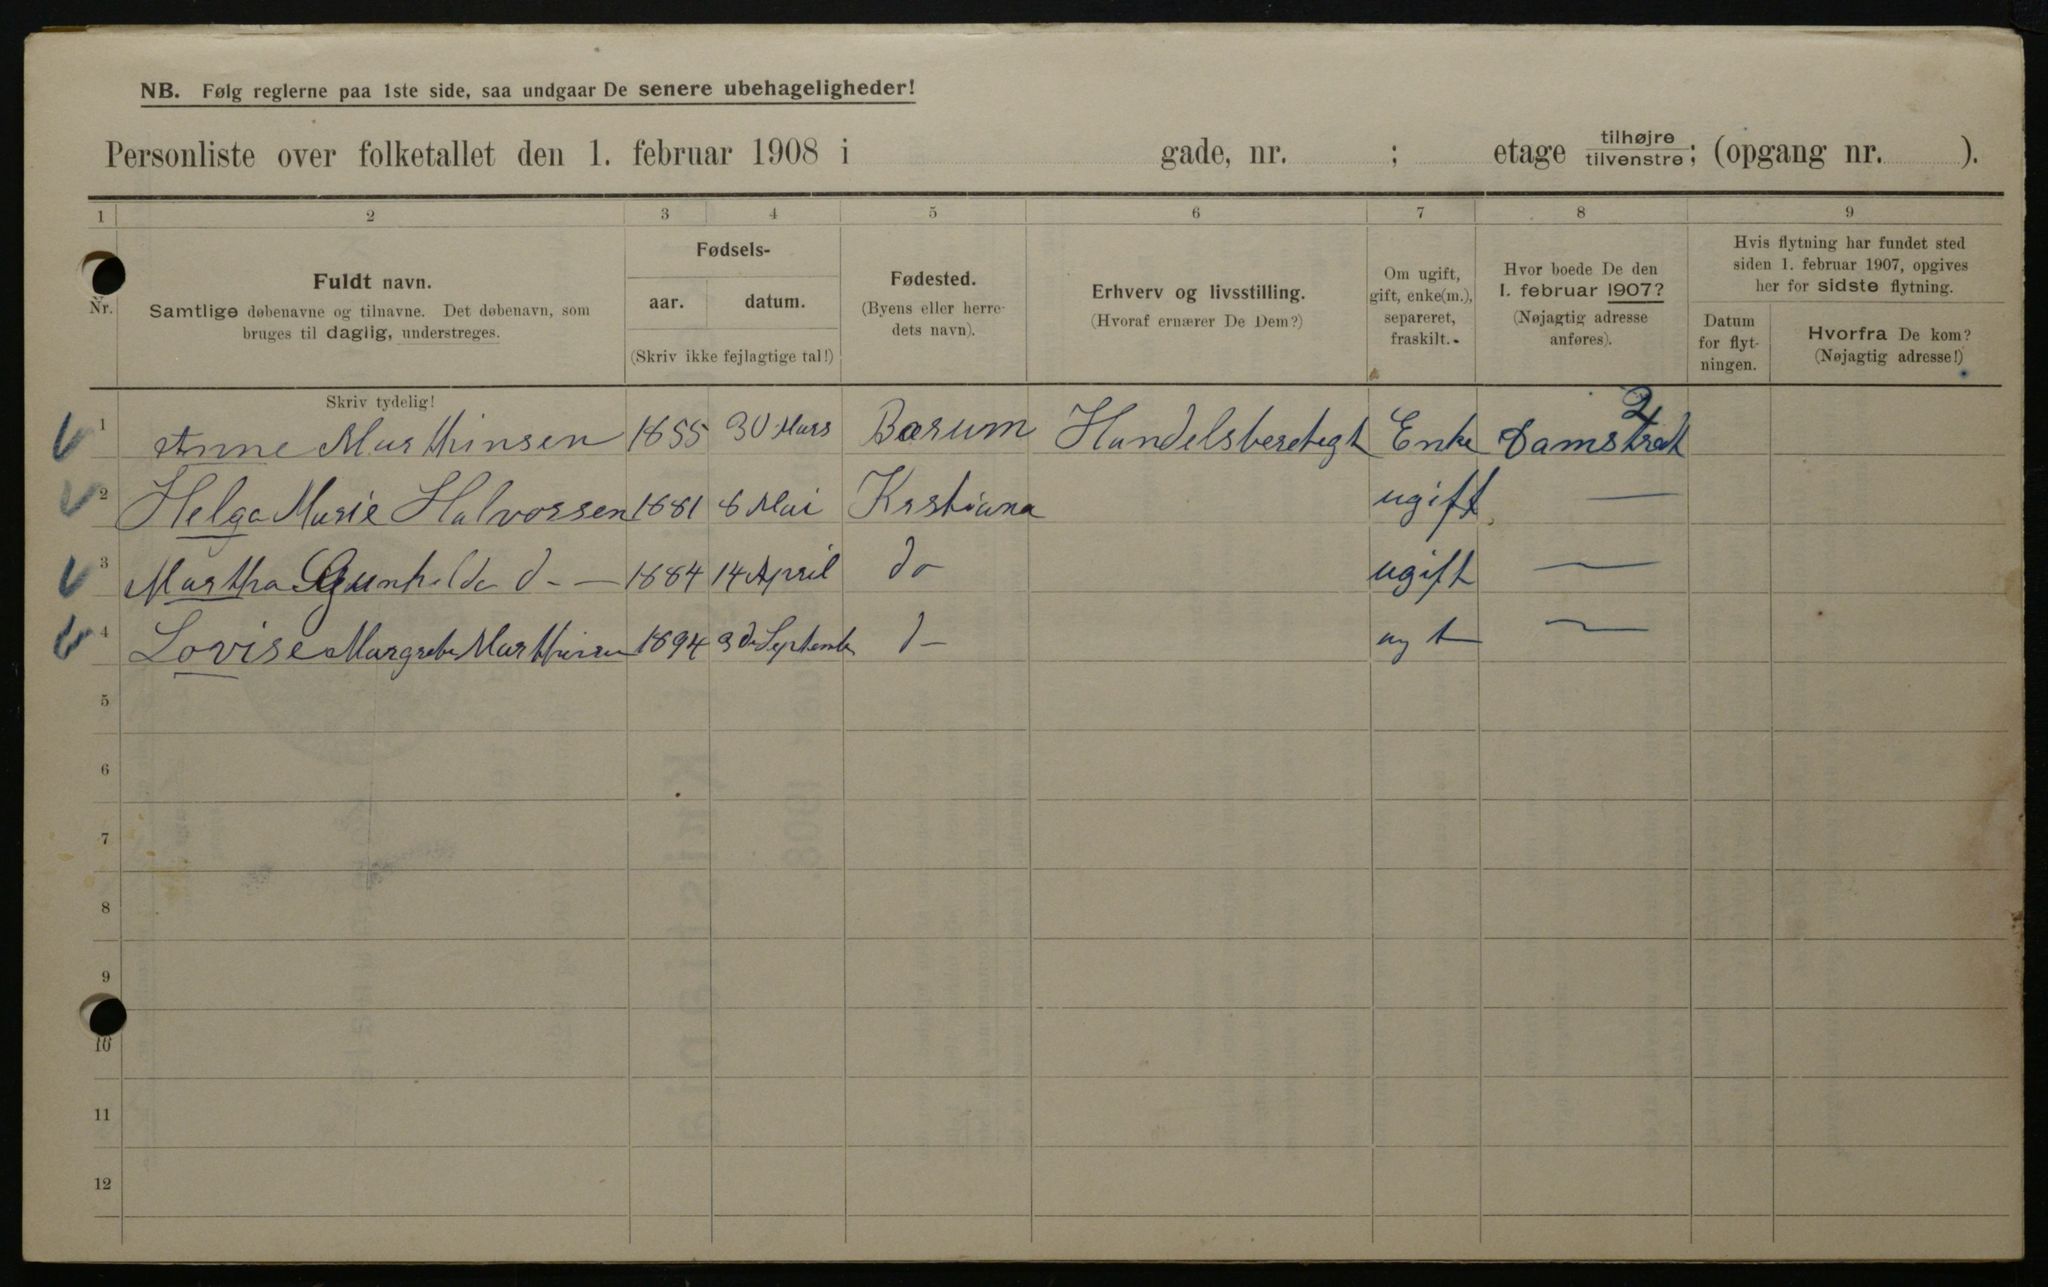 NB. Følg reglerne paa 1ste side, saa undgaar De senere ubehageligheder!
Personliste over folketallet den 1. februar 1908 i gade, nr. ; etage tilhøjre tilvenstre; (opgang nr. ).
1 2 3 4 5 6 7 8 9
Nr.
Fuldt navn.
Samtlige døbenavne og tilnavne. Det døbenavn, som
bruges til daglig, understreges.
Skriv tydelig!
Fødsels-
aar. datum.
(Skriv ikke fejlagtige tal!)
Fødested.
(Byens eller herre-
dets navn).
Erhverv og livsstilling.
(Hvoraf ernærer De Dem?)
Om ugift,
gift, enke(m.),
separeret,
fraskilt.
Hvor boede De den
1. februar 1907?
(Nøjagtig adresse
anføres).
Hvis flytning har fundet sted
siden 1. februar 1907, opgives
her for sidste flytning.
Datum
for flyt-
ningen.
Hvorfra De kom?
(Nøjagtig adresse!)
1 Anne Marthinsen 1855 30 Mars Bærum Handelsberetigt Enke Damstrdt 2
2 Helga Marie Halvorsen 1881 8 Mai Kristiana ugift —
3 Martha Gunhilda d - — 1884 14 April do ugift —
4 Lovise Margrete Marthinsen 1894 3 de Septemb d - ugt —
5
6
7
8
9
10
11
12